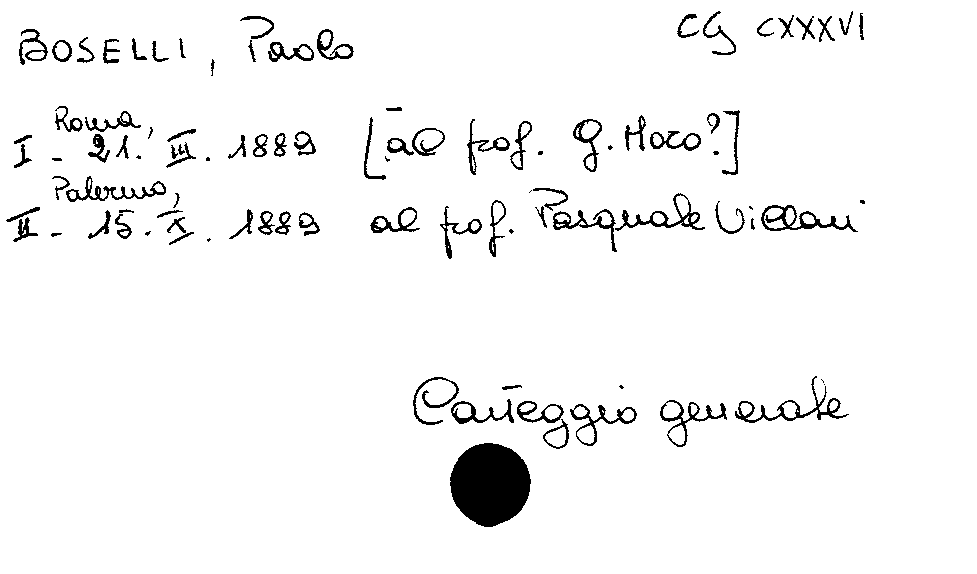 BOSELLI, Paolo
CG CXXXVI
Roma,
I - 21. III. 1889 [al prof. G. Moro?]
Palermo,
II - 15. X. 1889 al prof. Pasquale Villari
Carteggio generale